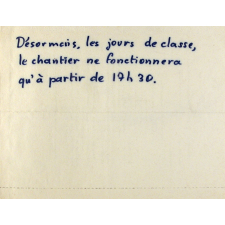 Désormais, les jours de classe,
le chantier ne fonctionnera
qu'à partir de 17h30.